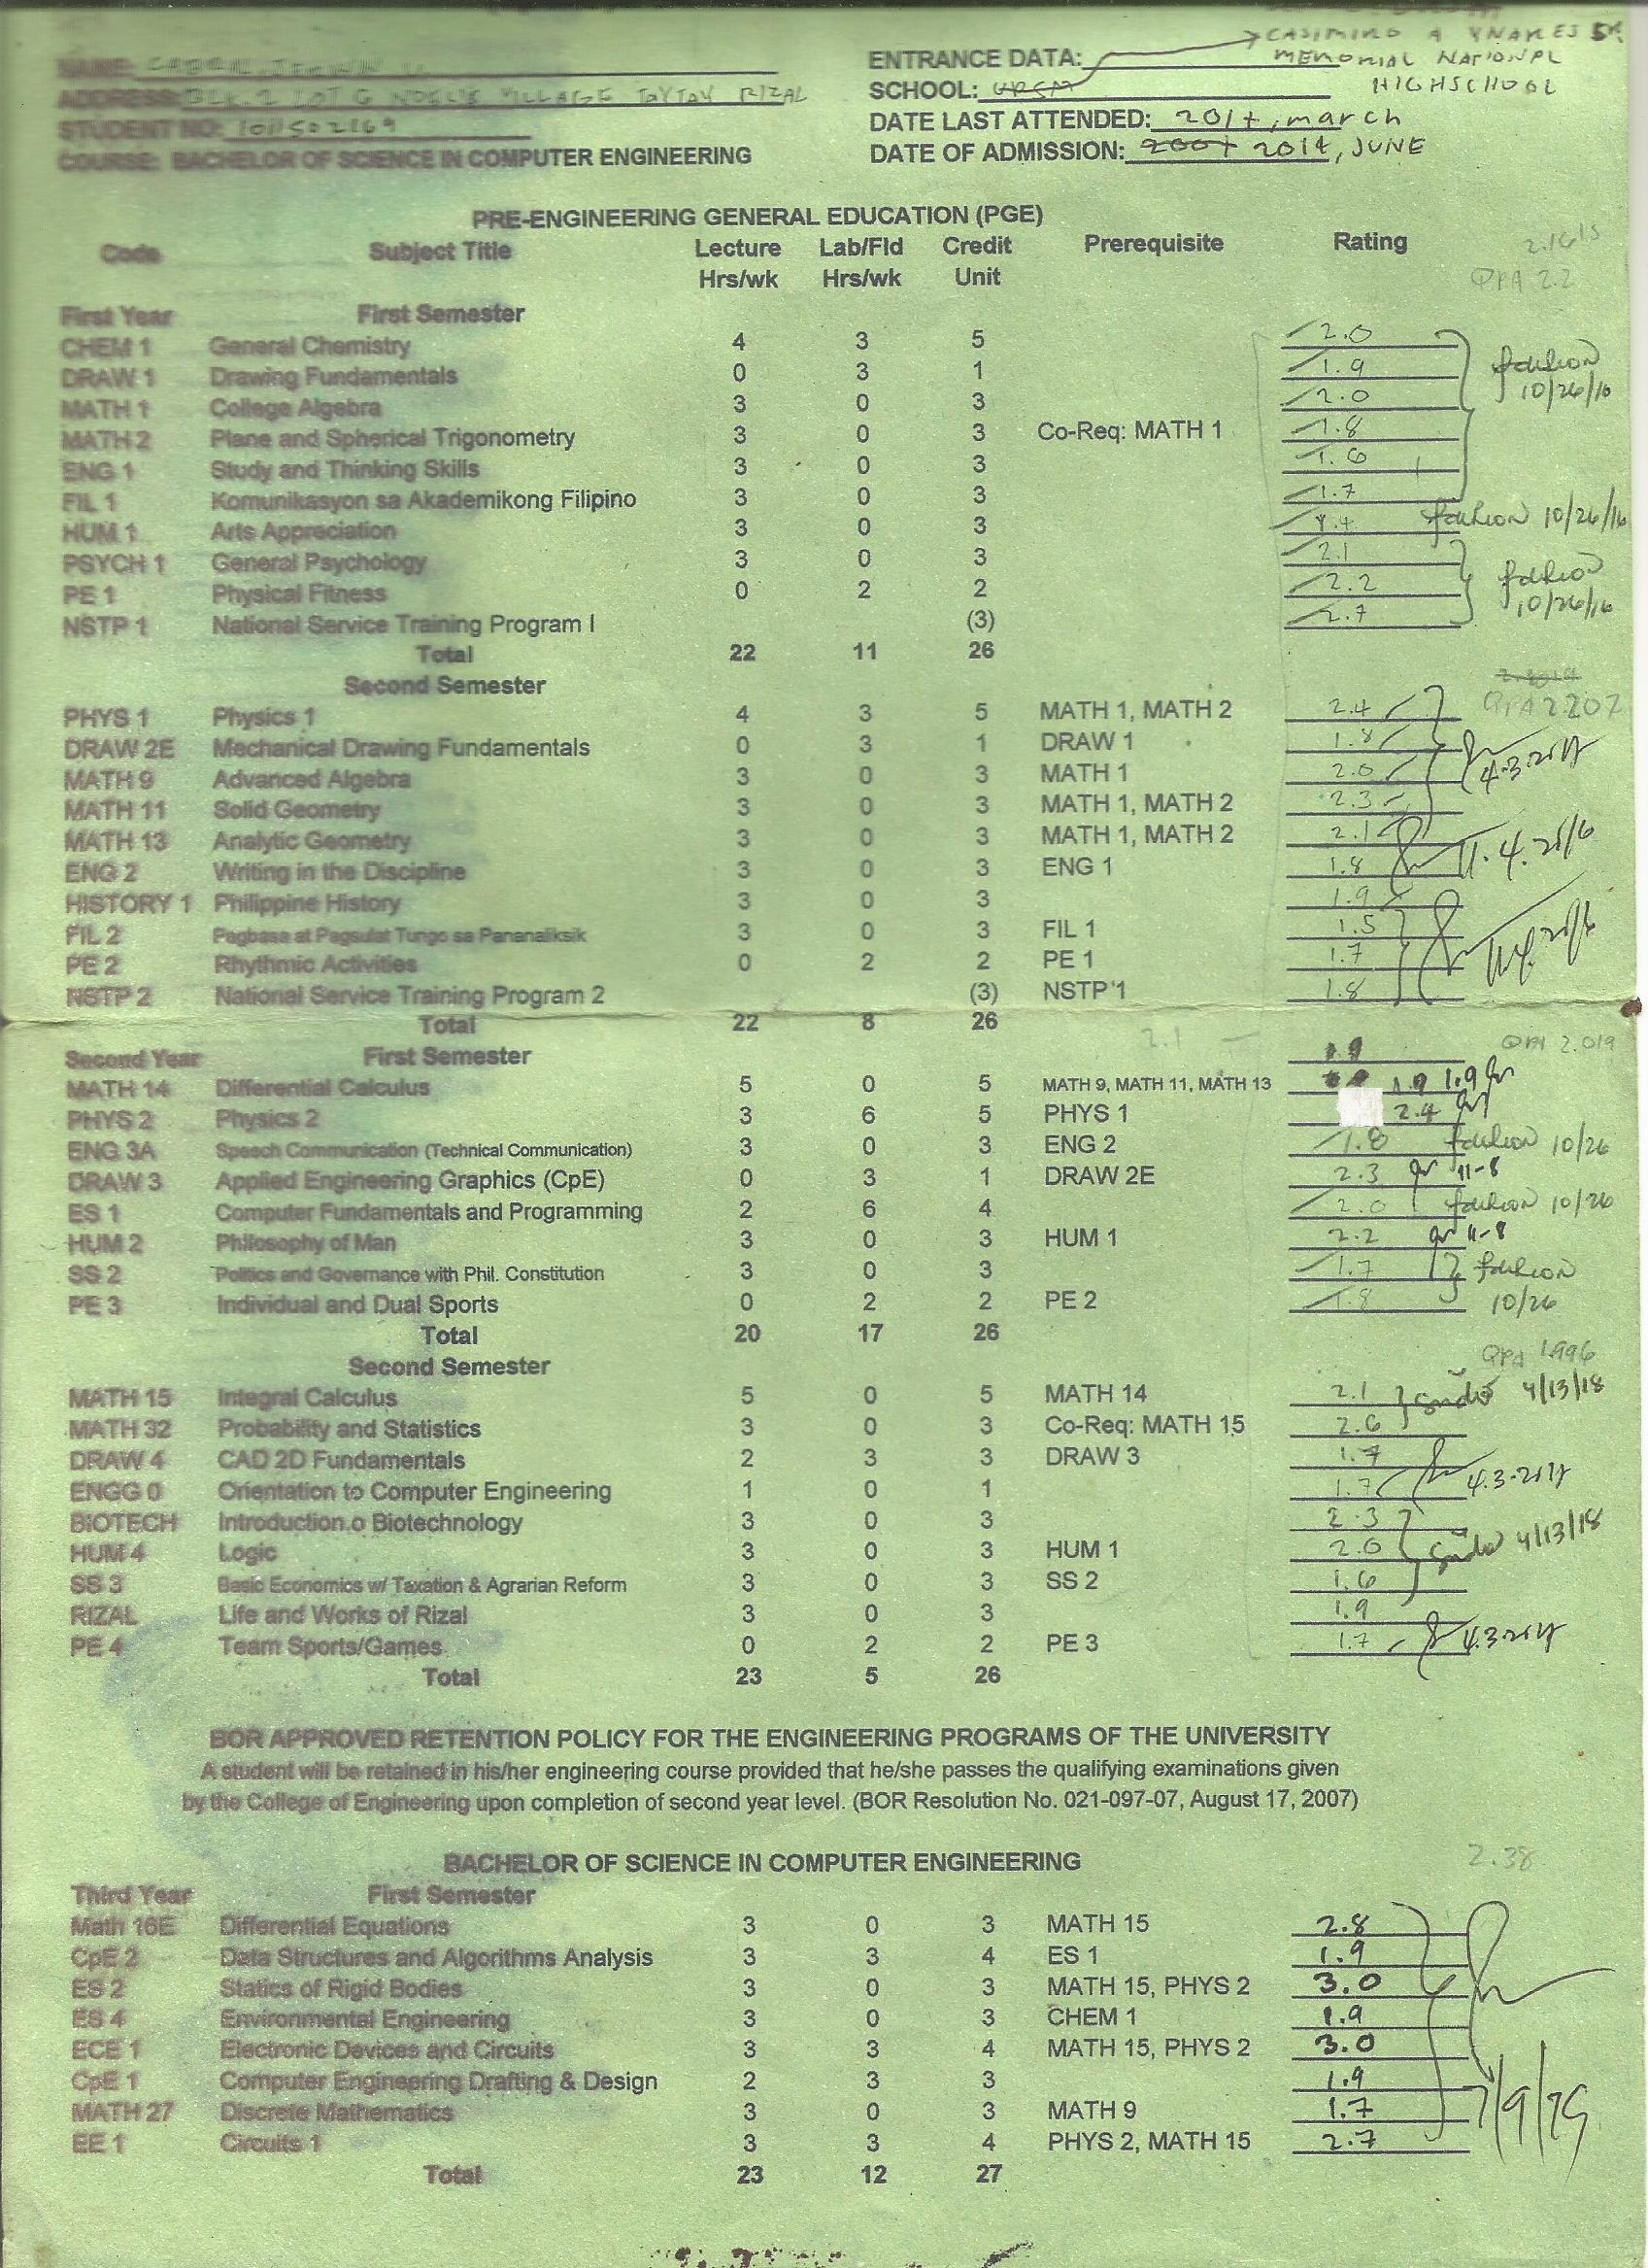 CASIMIRO A YNARES SR
NAME: ENTRANCE DATA: MEMORIAL NATIONAL
ADDRESS: BLK.2 LOT 6 NOEL'S VILLAGE TAYTAY RIZAL SCHOOL: URSM HIGHSCHOOL
STUDENT NO: DATE LAST ATTENDED: 2014, march
COURSE: BACHELOR OF SCIENCE IN COMPUTER ENGINEERING DATE OF ADMISSION: 2014, JUNE
PRE-ENGINEERING GENERAL EDUCATION (PGE)
Code Subject Title Lecture Lab/Fld Credit Prerequisite Rating
Hrs/wk Hrs/wk Unit QPA 2.2
First Year First Semester
CHEM 1 General Chemistry 4 3 5 2.0
DRAW 1 Drawing Fundamentals 0 3 1 1.9
MATH 1 College Algebra 3 0 3 2.0 10/26/16
MATH 2 Plane and Spherical Trigonometry 3 0 3 Co-Req: MATH 1 1.8
ENG 1 Study and Thinking Skills 3 0 3 1.6
FIL 1 Komunikasyon sa Akademikong Filipino 3 0 3 1.7
HUM 1 Arts Appreciation 3 0 3 10/26/16
PSYCH 1 General Psychology 3 0 3 2.1
PE 1 Physical Fitness 0 2 2 2.2
NSTP 1 National Service Training Program I (3) 2.7 10/26/16
Total 22 11 26
Second Semester
PHYS 1 Physics 1 4 3 5 MATH 1, MATH 2 2.4 QPA 2.207
DRAW 2E Mechanical Drawing Fundamentals 0 3 1 DRAW 1 1.8
MATH 9 Advanced Algebra 3 0 3 MATH 1 2.0
MATH 11 Solid Geometry 3 0 3 MATH 1, MATH 2 2.3
MATH 13 Analytic Geometry 3 0 3 MATH 1, MATH 2 2.1
ENG 2 Writing in the Discipline 3 0 3 ENG 1 1.8 11.4.2016
HISTORY 1 Philippine History 3 0 3 1.9
FIL 2 Pagbasa at Pagsulat Tungo sa Pananaliksik 3 0 3 FIL 1 1.5
PE 2 Rhythmic Activities 0 2 2 PE 1 1.7
NSTP 2 National Service Training Program 2 (3) NSTP 1 1.8
Total 22 8 26 2.1
Second Year First Semester 1.9 QPA 2.019
MATH 14 Differential Calculus 5 0 5 MATH 9, MATH 11, MATH 13 1.9 1.9
PHYS 2 Physics 2 3 6 5 PHYS 1 2.4
ENG 3A Speech Communication (Technical Communication) 3 0 3 ENG 2 1.8 10/26
DRAW 3 Applied Engineering Graphics (CpE) 0 3 1 DRAW 2E 2.3 11-8
ES 1 Computer Fundamentals and Programming 2 6 4 2.0 10/26
HUM 2 Philosophy of Man 3 0 3 HUM 1 2.2 11-8
SS 2 Politics and Governance with Phil. Constitution 3 0 3 1.7
PE 3 Individual and Dual Sports 0 2 2 PE 2 1.8 10/26
Total 20 17 26
Second Semester QPA 1.996
MATH 15 Integral Calculus 5 0 5 MATH 14 2.1 4/13/18
MATH 32 Probability and Statistics 3 0 3 Co-Req: MATH 15 2.6
DRAW 4 CAD 2D Fundamentals 2 3 3 DRAW 3 1.7
ENGG 0 Orientation to Computer Engineering 1 0 1 1.7
BIOTECH Introduction.o Biotechnology 3 0 3 2.3 4/13/18
HUM 4 Logic 3 0 3 HUM 1 2.0
SS 3 Basic Economics w/ Taxation & Agrarian Reform 3 0 3 SS 2 1.6
RIZAL Life and Works of Rizal 3 0 3 1.9
PE 4 Team Sports/Games 0 2 2 PE 3 1.7
Total 23 5 26
BOR APPROVED RETENTION POLICY FOR THE ENGINEERING PROGRAMS OF THE UNIVERSITY
A student will be retained in his/her engineering course provided that he/she passes the qualifying examinations given
by the College of Engineering upon completion of second year level. (BOR Resolution No. 021-097-07, August 17, 2007)
BACHELOR OF SCIENCE IN COMPUTER ENGINEERING 2.38
Third Year First Semester
Math 16E Differential Equations 3 0 3 MATH 15 2.8
CpE 2 Data Structures and Algorithms Analysis 3 3 4 ES 1 1.9
ES 2 Statics of Rigid Bodies 3 0 3 MATH 15, PHYS 2 3.0
ES 4 Environmental Engineering 3 0 3 CHEM 1 1.9
ECE 1 Electronic Devices and Circuits 3 3 4 MATH 15, PHYS 2 3.0
CpE 1 Computer Engineering Drafting & Design 2 3 3 1.9
MATH 27 Discrete Mathematics 3 0 3 MATH 9 1.7
EE 1 Circuits 1 3 3 4 PHYS 2, MATH 15 2.7
Total 23 12 27